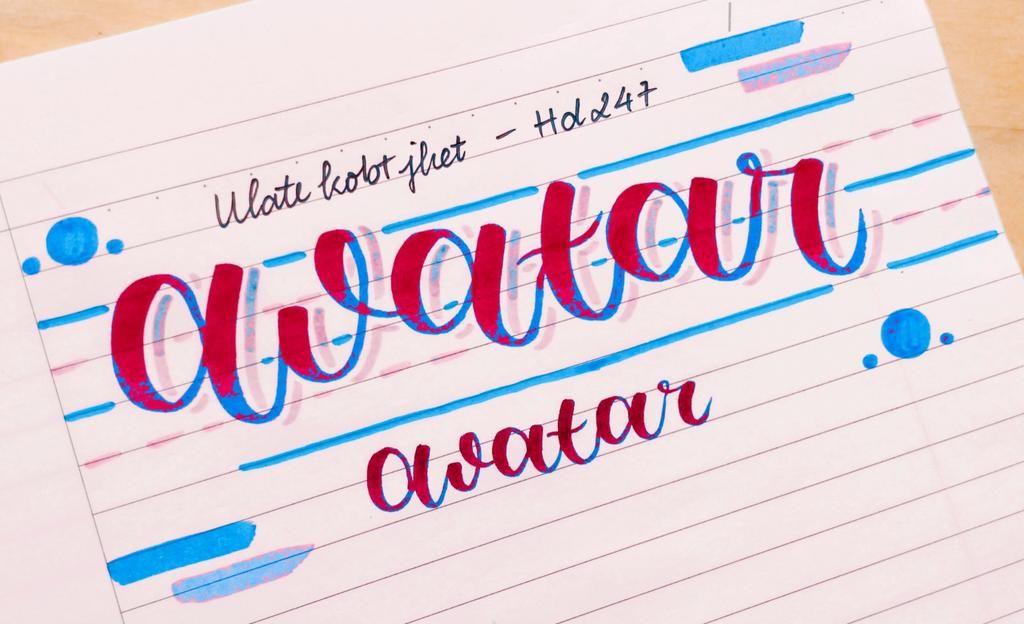 Ulate kobt jhet - Hd247
avatar
avatar